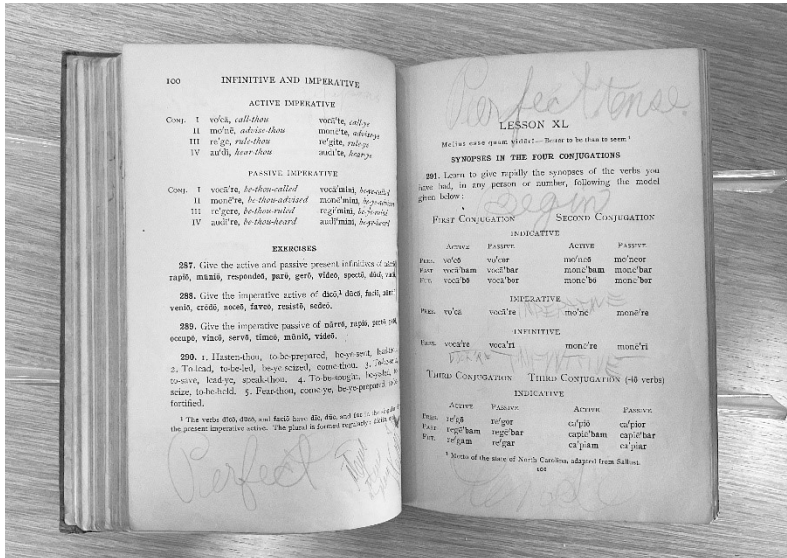 100 INFINITIVE AND IMPERATIVE
ACTIVE IMPERATIVE
CONJ. I vo'cā, call-thou vocā'te, call-ye
II mo'nē, advise-thou monē'te, advise-ye
III re'ge, rule-thou re'gite, rule-ye
IV au'dī, hear-thou audī'te, hear-ye
PASSIVE IMPERATIVE
CONJ. I vocā're, be-thou-called vocā'minī, be-ye-called
II monē're, be-thou-advised monē'minī, be-ye-advised
III re'gere, be-thou-ruled regi'minī, be-ye-ruled
IV audī're, be-thou-heard audī'minī, be-ye-heard
EXERCISES
287. Give the active and passive present infinitives of
rapiō, mūniō, respondeō, parō, gerō, videō, spectō, dūcō,
288. Give the imperative active of dīcō,¹ dūcō, faciō,
veniō, crēdō, noceō, faveō, resistō, sedeō.
289. Give the imperative passive of nārrō, rapiō,
occupō, vincō, servō, timeō, mūniō, videō.
290. 1. Hasten-thou, to-be-prepared, be-ye-sent,
2. To-lead, to-be-led, be-ye-seized, come-thou. 3.
to-save, lead-ye, speak-thou. 4. To-be-sought,
seize, to-be-held. 5. Fear-thou, come-ye, be-ye-prepared,
fortified.
¹ The verbs dīcō, dūcō, and faciō have dīc, dūc, and fac in the singular of
the present imperative active. The plural is formed regularly:
Perfect
Perfect tense
LESSON XL
Melius esse quam vidērī — Better to be than to seem ¹
SYNOPSES IN THE FOUR CONJUGATIONS
291. Learn to give rapidly the synopses of the verbs you
have had, in any person or number, following the model
given below:
begin
FIRST CONJUGATION SECOND CONJUGATION
INDICATIVE
ACTIVE PASSIVE ACTIVE PASSIVE
PRES. vo'cō vo'cor mo'neō mo'neor
PAST vocā'bam vocā'bar monē'bam monē'bar
FUT. vocā'bō vocā'bor monē'bō monē'bor
IMPERATIVE
PRES. vo'cā vocā're mo'nē monē're
INFINITIVE
PRES. vocā're vocā'rī monē're monē'rī
INFINITIVE
THIRD CONJUGATION THIRD CONJUGATION (-iō verbs)
INDICATIVE
ACTIVE PASSIVE ACTIVE PASSIVE
PRES. re'gō re'gor ca'piō ca'pior
PAST regē'bam regē'bar capiē'bam capiē'bar
FUT. re'gam re'gar ca'piam ca'piar
¹ Motto of the state of North Carolina, adapted from Sallust.
101